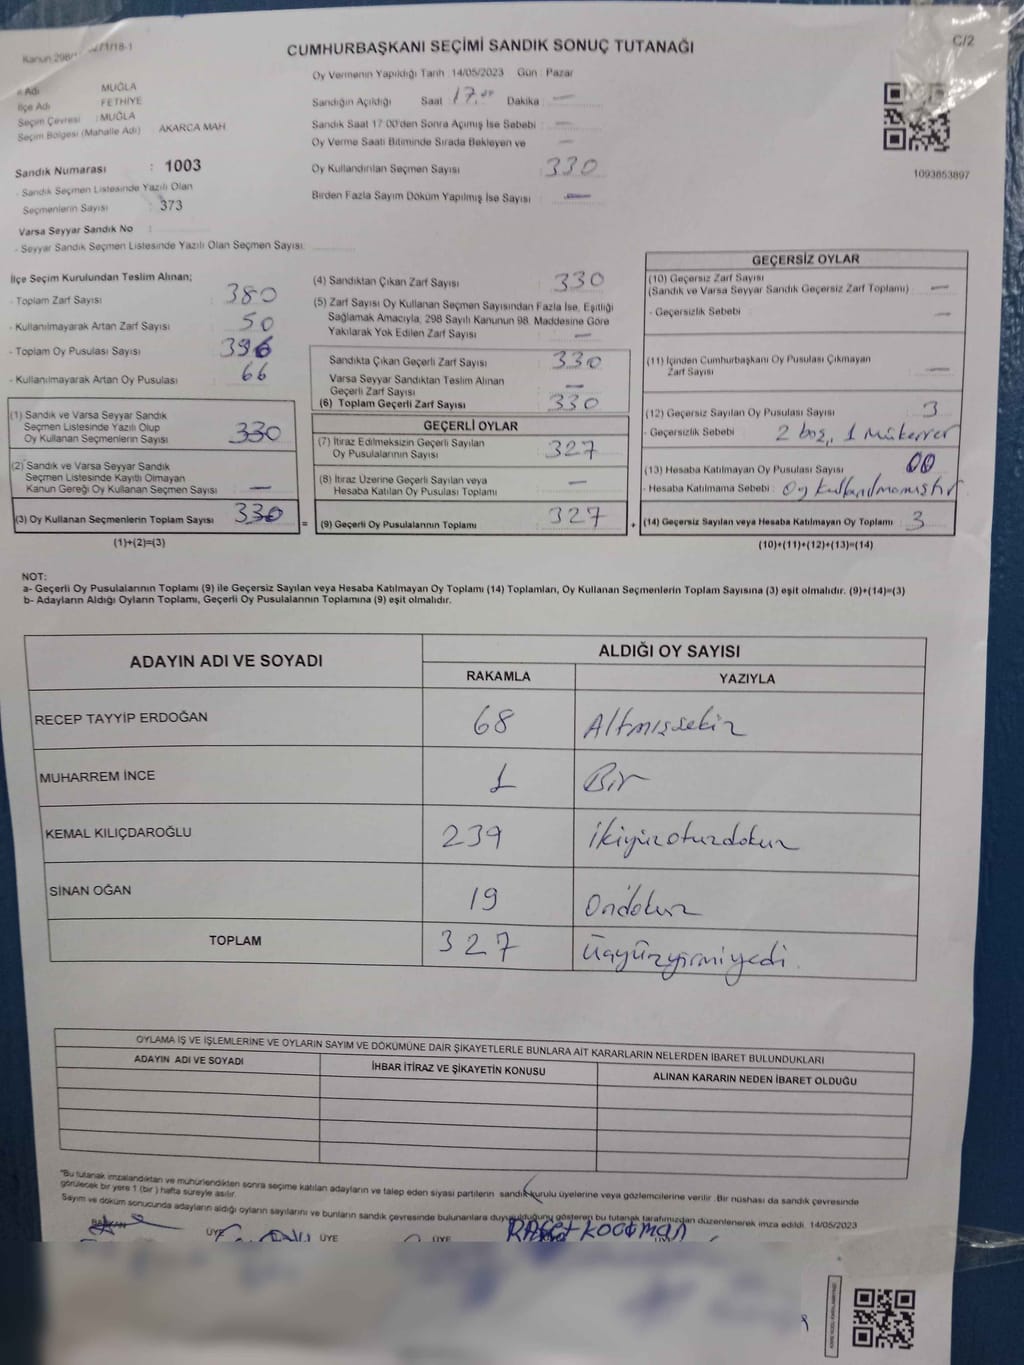 CUMHURBAŞKANI SEÇİMİ SANDIK SONUÇ TUTANAĞI
C/2
Kanun 298/
İl Adı MUĞLA
İlçe Adı FETHİYE
Seçim Çevresi : MUĞLA
Seçim Bölgesi (Mahalle Adı) AKARCA MAH
Sandık Numarası : 1003
- Sandık Seçmen Listesinde Yazılı Olan
Seçmenlerin Sayısı : 373
Varsa Seyyar Sandık No :
- Seyyar Sandık Seçmen Listesinde Yazılı Olan Seçmen Sayısı:
Oy Vermenin Yapıldığı Tarih : 14/05/2023 Gün : Pazar
Sandığın Açıldığı Saat 17.00 Dakika : —
Sandık Saat 17:00'den Sonra Açımış İse Sebebi : —
Oy Verme Saati Bitiminde Sırada Bekleyen ve —
Oy Kullandırılan Seçmen Sayısı : 330
Birden Fazla Sayım Döküm Yapılmış İse Sayısı : —
1093853897
İlçe Seçim Kurulundan Teslim Alınan;
- Toplam Zarf Sayısı : 380
- Kullanılmayarak Artan Zarf Sayısı : 50
- Toplam Oy Pusulası Sayısı : 396
- Kullanılmayarak Artan Oy Pusulası : 66
(1) Sandık ve Varsa Seyyar Sandık
Seçmen Listesinde Yazılı Olup
Oy Kullanan Seçmenlerin Sayısı : 330
(2) Sandık ve Varsa Seyyar Sandık
Seçmen Listesinde Kayıtlı Olmayan
Kanun Gereği Oy Kullanan Seçmen Sayısı : —
(3) Oy Kullanan Seçmenlerin Toplam Sayısı : 330
(1)+(2)=(3)
(4) Sandıktan Çıkan Zarf Sayısı : 330
(5) Zarf Sayısı Oy Kullanan Seçmen Sayısından Fazla İse, Eşitliği
Sağlamak Amacıyla, 298 Sayılı Kanunun 98. Maddesine Göre
Yakılarak Yok Edilen Zarf Sayısı : —
Sandıkta Çıkan Geçerli Zarf Sayısı : 330
Varsa Seyyar Sandıktan Teslim Alınan
Geçerli Zarf Sayısı : —
(6) Toplam Geçerli Zarf Sayısı : 330
GEÇERLİ OYLAR
(7) İtiraz Edilmeksizin Geçerli Sayılan
Oy Pusulalarının Sayısı : 327
(8) İtiraz Üzerine Geçerli Sayılan veya
Hesaba Katılan Oy Pusulası Toplamı : —
= (9) Geçerli Oy Pusulalarının Toplamı : 327
GEÇERSİZ OYLAR
(10) Geçersiz Zarf Sayısı
(Sandık ve Varsa Seyyar Sandık Geçersiz Zarf Toplamı) : —
- Geçersizlik Sebebi : —
(11) İçinden Cumhurbaşkanı Oy Pusulası Çıkmayan
Zarf Sayısı : —
(12) Geçersiz Sayılan Oy Pusulası Sayısı : 3
- Geçersizlik Sebebi : 2 boş, 1 Mükerrer
(13) Hesaba Katılmayan Oy Pusulası Sayısı : 00
- Hesaba Katılmama Sebebi : Oy kullanılmamıştır
+ (14) Geçersiz Sayılan veya Hesaba Katılmayan Oy Toplamı : 3
(10)+(11)+(12)+(13)=(14)
NOT:
a- Geçerli Oy Pusulalarının Toplamı (9) ile Geçersiz Sayılan veya Hesaba Katılmayan Oy Toplamı (14) Toplamları, Oy Kullanan Seçmenlerin Toplam Sayısına (3) eşit olmalıdır. (9)+(14)=(3)
b- Adayların Aldığı Oyların Toplamı, Geçerli Oy Pusulalarının Toplamına (9) eşit olmalıdır.
ADAYIN ADI VE SOYADI ALDIĞI OY SAYISI
RAKAMLA YAZIYLA
RECEP TAYYİP ERDOĞAN 68 Altmışsekiz
MUHARREM İNCE 1 Bir
KEMAL KILIÇDAROĞLU 239 ikiyüzotuzdokuz
SİNAN OĞAN 19 Ondokuz
TOPLAM 327 Üçyüzyirmiyedi.
OYLAMA İŞ VE İŞLEMLERİNE VE OYLARIN SAYIM VE DÖKÜMÜNE DAİR ŞİKAYETLERLE BUNLARA AİT KARARLARIN NELERDEN İBARET BULUNDUKLARI
ADAYIN ADI VE SOYADI İHBAR İTİRAZ VE ŞİKAYETİN KONUSU ALINAN KARARIN NEDEN İBARET OLDUĞU
"Bu tutanak imzalandıktan ve mühürlendikten sonra seçime katılan adayların ve talep eden siyasi partilerin sandık kurulu üyelerine veya gözlemcilerine verilir. Bir nüshası da sandık çevresinde
görülecek bir yere 1 (bir) hafta süreyle asılır.
Sayım ve döküm sonucunda adayların aldığı oyların sayılarını ve bunların sandık çevresinde bulunanlara duyurulduğunu gösteren bu tutanak tarafımızdan düzenlenerek imza edildi. 14/05/2023
BAŞKAN ÜYE ÜYE ÜYE